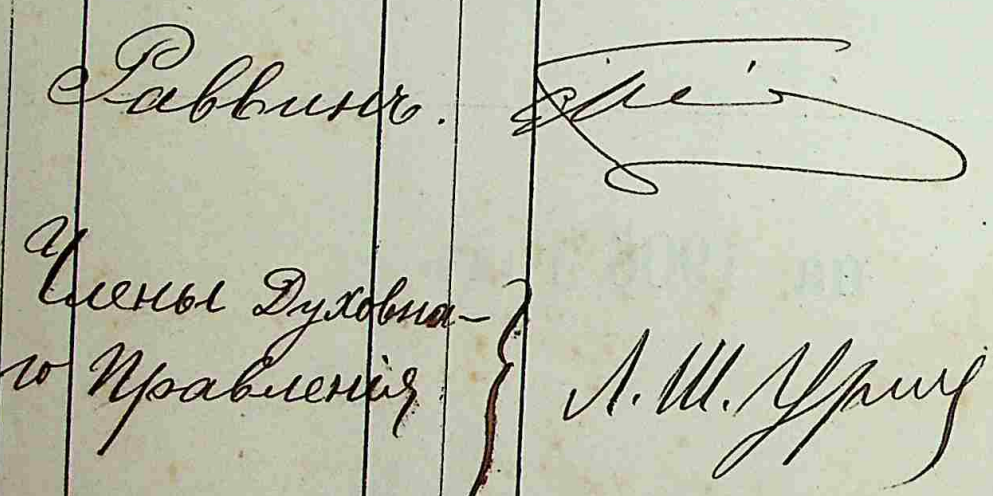 Раввинъ.
Члены Духовна-
го Правленія
Л. Ш. Урич